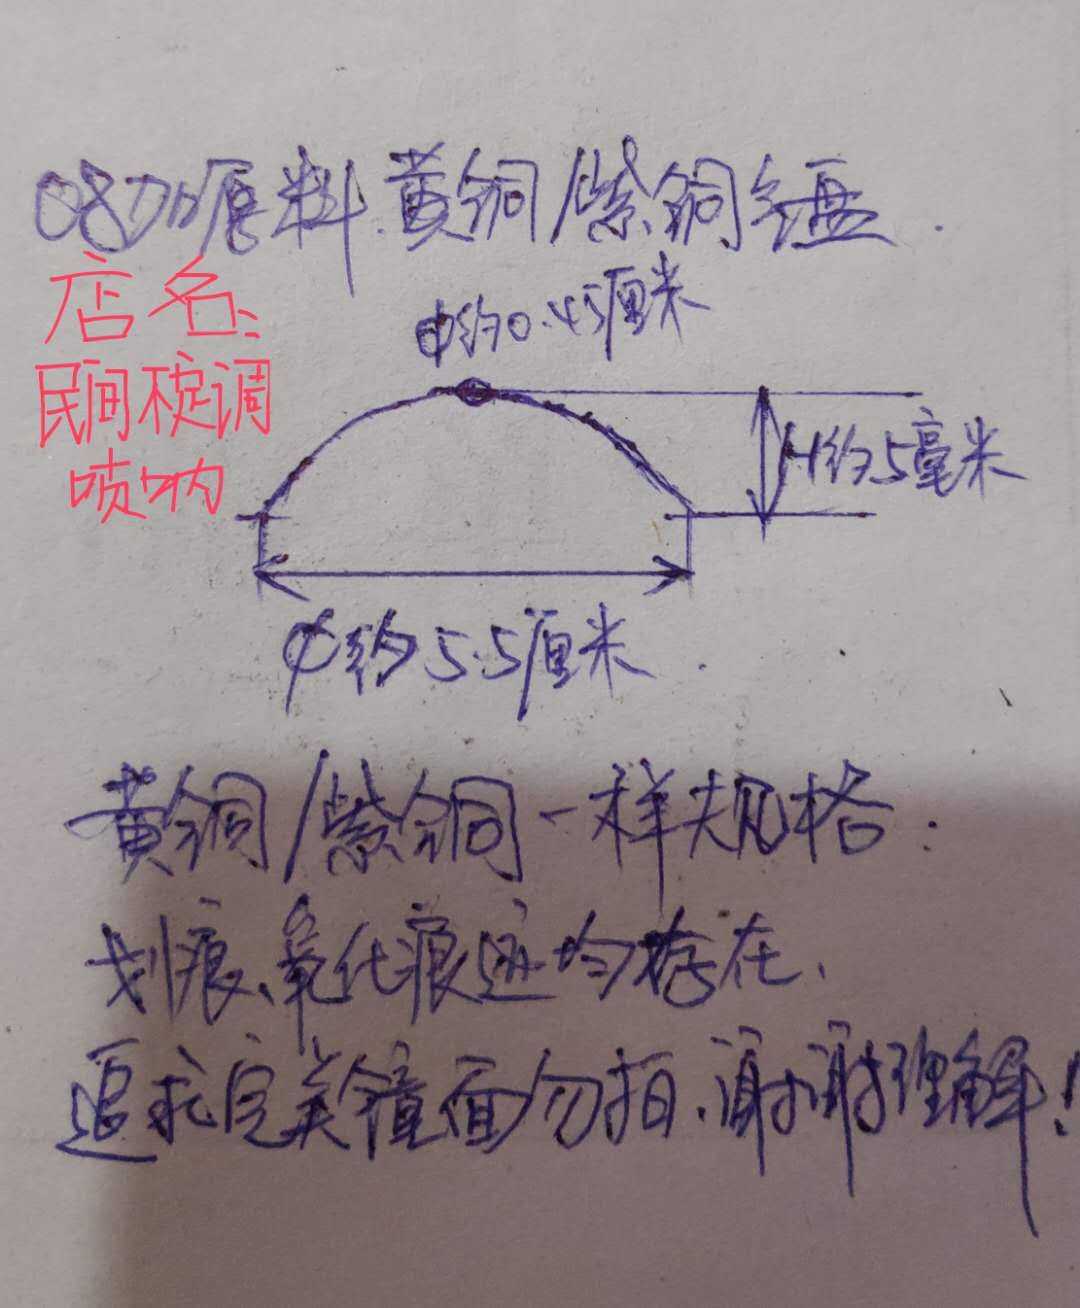 08加厚料.黄铜/紫铜气盘.
店名:
民间梡调
唢呐
φ约0.45厘米
H约.5毫米
φ约5.5厘米.
黄铜/紫铜一样规格.
划痕、氧化痕迹均存在.
追求完美镜面勿拍.谢谢理解!